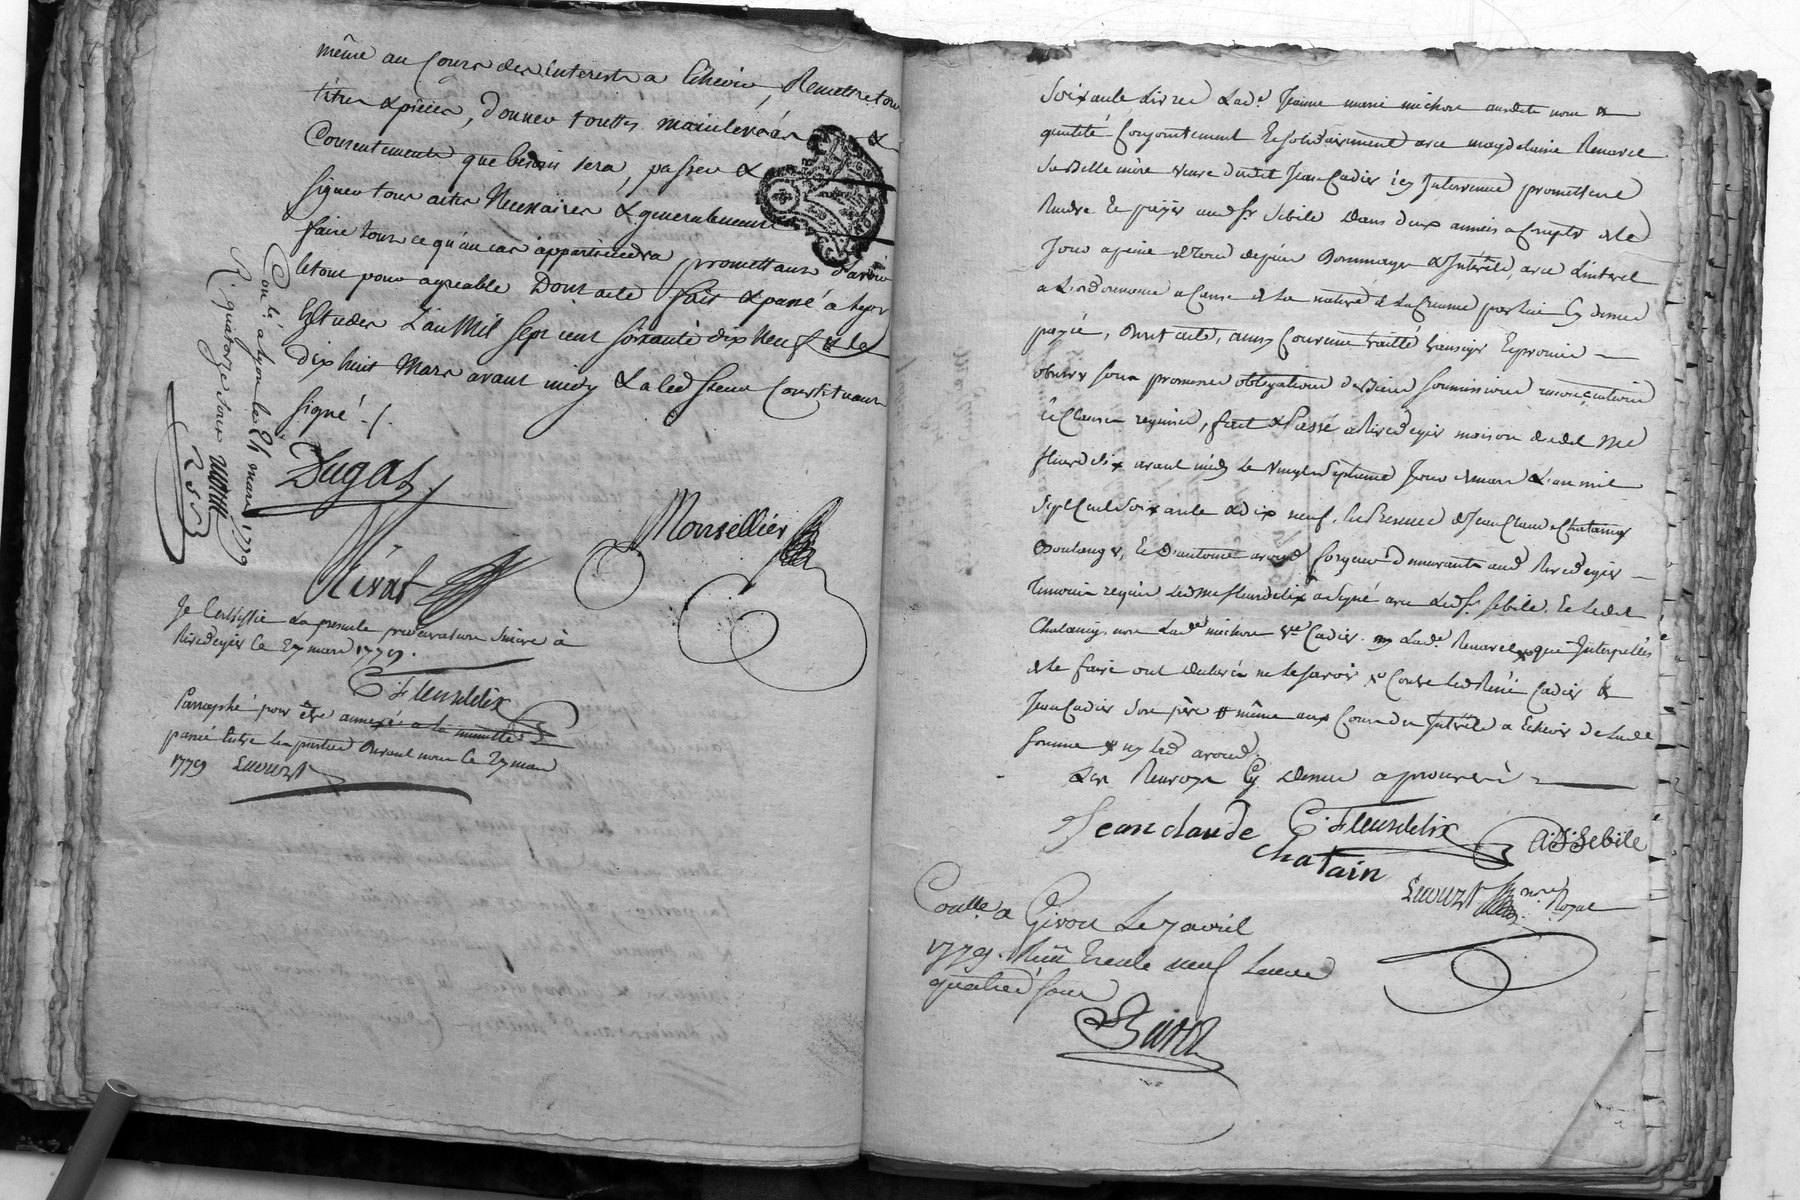 même au Cours des interests a Echeoir, Remettre tous
titres & pièces, donner touttes mainlevées &
Consentements que besoin sera, passer &
signer tous actes Necessaires & generalement
faire tout ce qu'au cas appartiendra promettant d'avoir
le tout pour agreable Dont acte fait & passé a Lyon
Ez Etudes L'an Mil sept cent soixante dix Neuf & le
dix huit Mars avant midy & a led sieur Constituant
signé ./.
Dugas
Monsellier
Con.lé a Lyon le mars 1779
R. quatorze sous
Je Certiffie La presente procuration sincere à
Rivedegier Le 27 mars 1779.
C. Fleurdelix
Parraphé pour être annexé a la minutte
passé Entre les parties devant nous Ce 27 mars
1779
Soixante Livres Lad.e Jeanne marie michon audits nom &
qualité Conjointement Et solidairement avec magdelaine Renarel
sa belle mère veuve dudit Jean Cadier icy Intervenue promettent
Rendre Et payer aud. Sr. Sebile Dans deux années a Compter de Ce
Jour a peine de tous depens Dommages & Intérêts, avec L'intérêt
a L'ordonnance a Cause de la nature de La Creance par lui Cy dessus
payée, dont acte, ainsy Convenu traitté transigé Et promis —
obliger sous promesses obligations des biens soumissions renonciations
Et Clauses requises, fait & Passé a Rivedegier maison dudit Me
fleurdelix avant midy Le vingt septieme Jour de mars L'an mil
sept Cent soixante & dix neuf. En Presence de Jean Claude Chatain
Boulanger, Et D'antoine forgeur demeurants aud. Rivedegier —
Temoins requis Led. Me fleurdelix a signé avec Led. Sr. sebile. Et Ledit
Chatain, non La d.e michon Ve Cadier. ny La d.e Renarel que Interpellés
de le faire ont declaré ne le savoir Contre led. René Cadier &
Jean Cadier son père même aux Cours des Intérêts a Echeoir de lade
somme ny led.
Les Renvoys Cy dessus approuvés —
Jean claude
chatain
C. Fleurdelix
A. Sebile
not.re Royal
Con.llé a Givors Le 7 avril
1779. Reçu trente neuf Livres
quatre sous